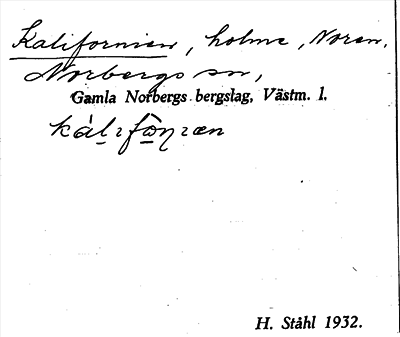 Kalifornien, holme, Noren.
Norbergs sn,
Gamla Norbergs bergslag, Västm. l.
H. Ståhl 1932.